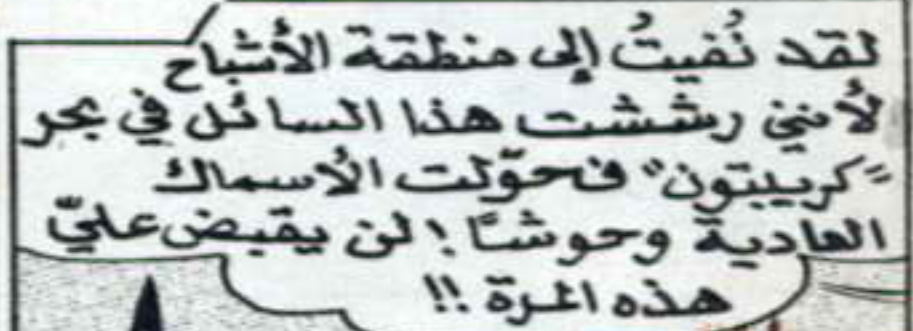 لقد نُفيتُ إلى منطقة الأشباح
لأنني رششت هذا السائل في بحر
"كريبتون" فحوّلت الأسماك
العادية وحوشًا! لن يقبض عليّ
هذه المرة!!